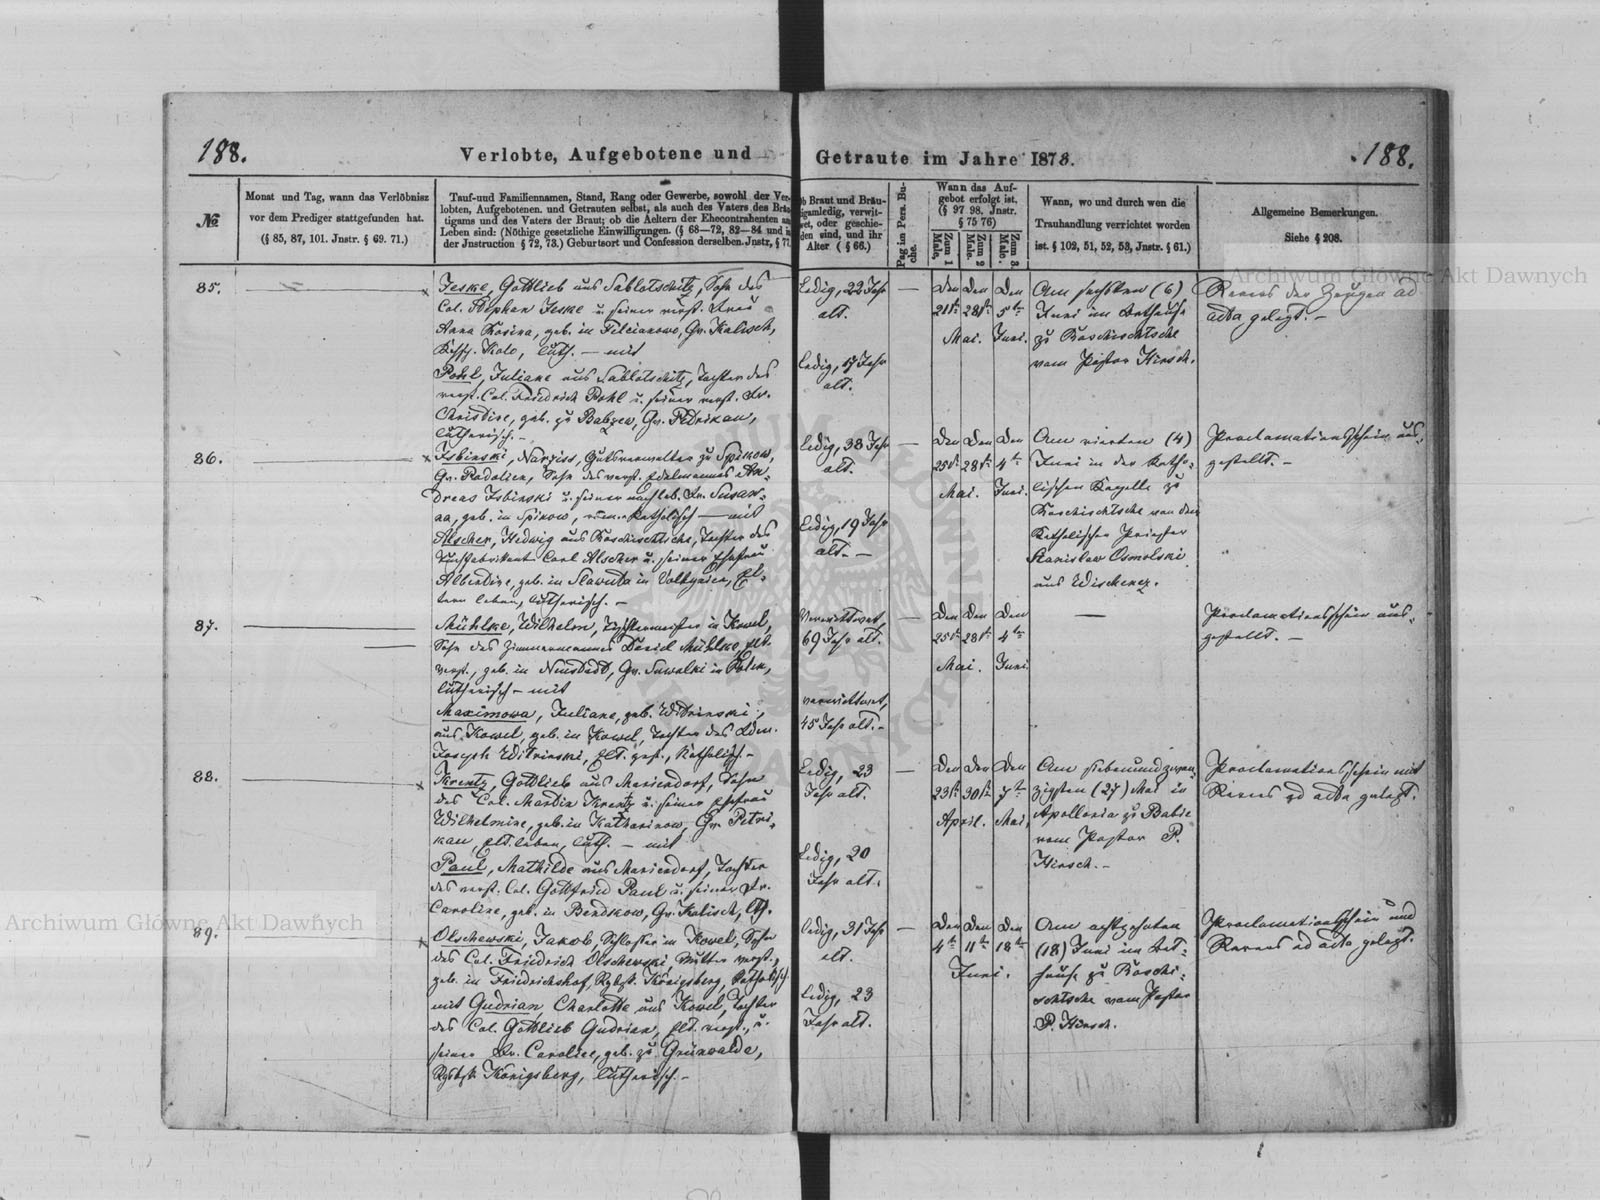 188.
Verlobte, Aufgebotene und
Getraute im Jahre 1873.
188.
№
Monat und Tag, wann das Verlöbnisz
vor dem Prediger stattgefunden hat.
(§ 85, 87, 101. Jnstr. § 69. 71.)
Tauf-und Familiennamen, Stand, Rang oder Gewerbe, sowohl der Ver-
lobten, Aufgebotenen. und Getrauten selbst, als auch des Vaters des Bräu-
tigams und des Vaters der Braut; ob die Aeltern der Ehecontrahenten am
Leben sind: (Nöthige gesetzliche Einwilligungen. (§ 68—72, 82—84 und in
der Jnstruction § 72, 73.) Geburtsort und Confession derselben. Jnstr, § 71
Ob Braut und Bräu-
tigam ledig, verwit-
wet, oder geschie-
den sind, und ihr
Alter ( § 66.)
Pag im Pers. Bu-
che.
Wann das Auf-
gebot erfolgt ist.
(§ 97 98. Jnstr.
§ 75 76)
Zum 1 Male.
Zum 2 Male.
Zum 3 Male.
Wann, wo und durch wen die
Trauhandlung verrichtet worden
ist. § 102, 51, 52, 53, Jnstr. § 61.)
Allgemeine Bemerkungen.
Siehe § 208.
85.
Jeske, Gottlieb aus Sablotschitz, Sohn des
Col. Stephan Jeske u. seiner verst. Frau
Anna Rosina, geb. in Felcianowo, Gv. Kalisch,
Kolo, luth. — mit
Pohl, Juliane aus Sablotschitz, Tochter des
verst. Col. Friedrich Pohl u. seiner verst. Fr.
Christine, geb. zu Gv. Petrikau,
lutherisch. —
Ledig, 22 Jahr
alt.
Ledig, 17 Jahr
alt.
Den 21ten
Den 28ten
Mai.
Den 5ten
Juni.
Am sechsten (6)
Juni im Bethause
zu Roschischtsche
vom Pastor Hirsch.
Revers der Zeugen ad
acta gelegt. —
86.
Isbinski, Narziss, Gutsverwalter zu Spikow,
Gv. Podolien, Sohn des verst. Edelmannes An-
dreas Isbinski u. seiner nachleb. Fr. Susan-
na, geb. in Spikow, röm. Katholisch — mit
Alscher, Hedwig aus Roschischtsche, Tochter des
Tuchfabrikant Carl Alscher u. seiner Ehefrau
Albertine, geb. in Slawuta in Volhynien, El-
tern leben, lutherisch. —
Ledig, 38 Jahr
alt.
Ledig, 19 Jahr
alt. —
Den 25ten
Den 28ten
Mai.
Den 4ten
Juni.
Am vierten (4)
Juni in der Katho-
lischen Kapelle zu
Roschischtsche von dem
Katholischen Priester
Stanislaw Osmolski
aus Wischenez.
Proclamationsschein aus-
gestellt. —
87.
Mühlke, Wilhelm, Tischlermeister in Kowel,
Sohn des Zimmermannes David Mühlke, Elt.
verst., geb. in Neustadt, Gv. Suwalki in Polen,
lutherisch — mit
Maximowa, Juliane, geb. Witrinski,
aus Kowel, geb. in Kowel, Tochter des Edm.
Joseph Witrinski, Elt. gest., Katholisch. —
Verwittwet,
69 Jahr alt.
verwittwet,
45 Jahr alt. —
Den 25ten
Den 28ten
Mai.
Den 4ten
Juni.
Proclamationsschein aus-
gestellt. —
88.
Krentz, Gottlieb aus Mariendorf, Sohn
des Col. Martin Krentz u. seiner Ehefrau
Wilhelmine, geb. in Katharinow, Gv. Petri-
kau, Elt. leben, luth. — mit
Paul, Mathilde aus Mariendorf, Tochter
des verst. Col. Gottfried Paul u. seiner Fr.
Caroline, geb. in Bendskow, Gv. Kalisch, lth.
Ledig, 23
Jahr alt.
Ledig, 20
Jahr alt.
Den 23ten
Den 30ten
April.
Den 7ten
Mai,
Am siebenundzwan-
zigsten (27) Mai in
Apollonia zu Babie
vom Pastor P.
Hirsch. —
Proclamationsschein mit
Revers ad acta gelegt.
89.
Olschewski, Jakob, Schlosser in Kowel, Sohn
des Col. Friedrich Olschewski, Mutter verst.,
geb. in Friedrichshof, Rgbzk. Königsberg, Katholisch
mit Gudrian, Charlotte aus Kowel, Tochter
des Col. Gottlieb Gudrian, Elt. verst., u.
seiner Fr. Caroline, geb. zu Grünwalde,
Rgbzk. Königsberg, lutherisch. —
Ledig, 31 Jahr
alt.
Ledig, 23
Jahr alt.
Den 4ten
Den 11ten
Den 18ten
Juni.
Am achtzehnten
(18) Juni im Bet-
hause zu Roschi-
schtsche vom Pastor
P. Hirsch.
Proclamationsschein und
Revers ad acta gelegt.
Archiwum Główne Akt Dawnych
Archiwum Główne Akt Dawnych